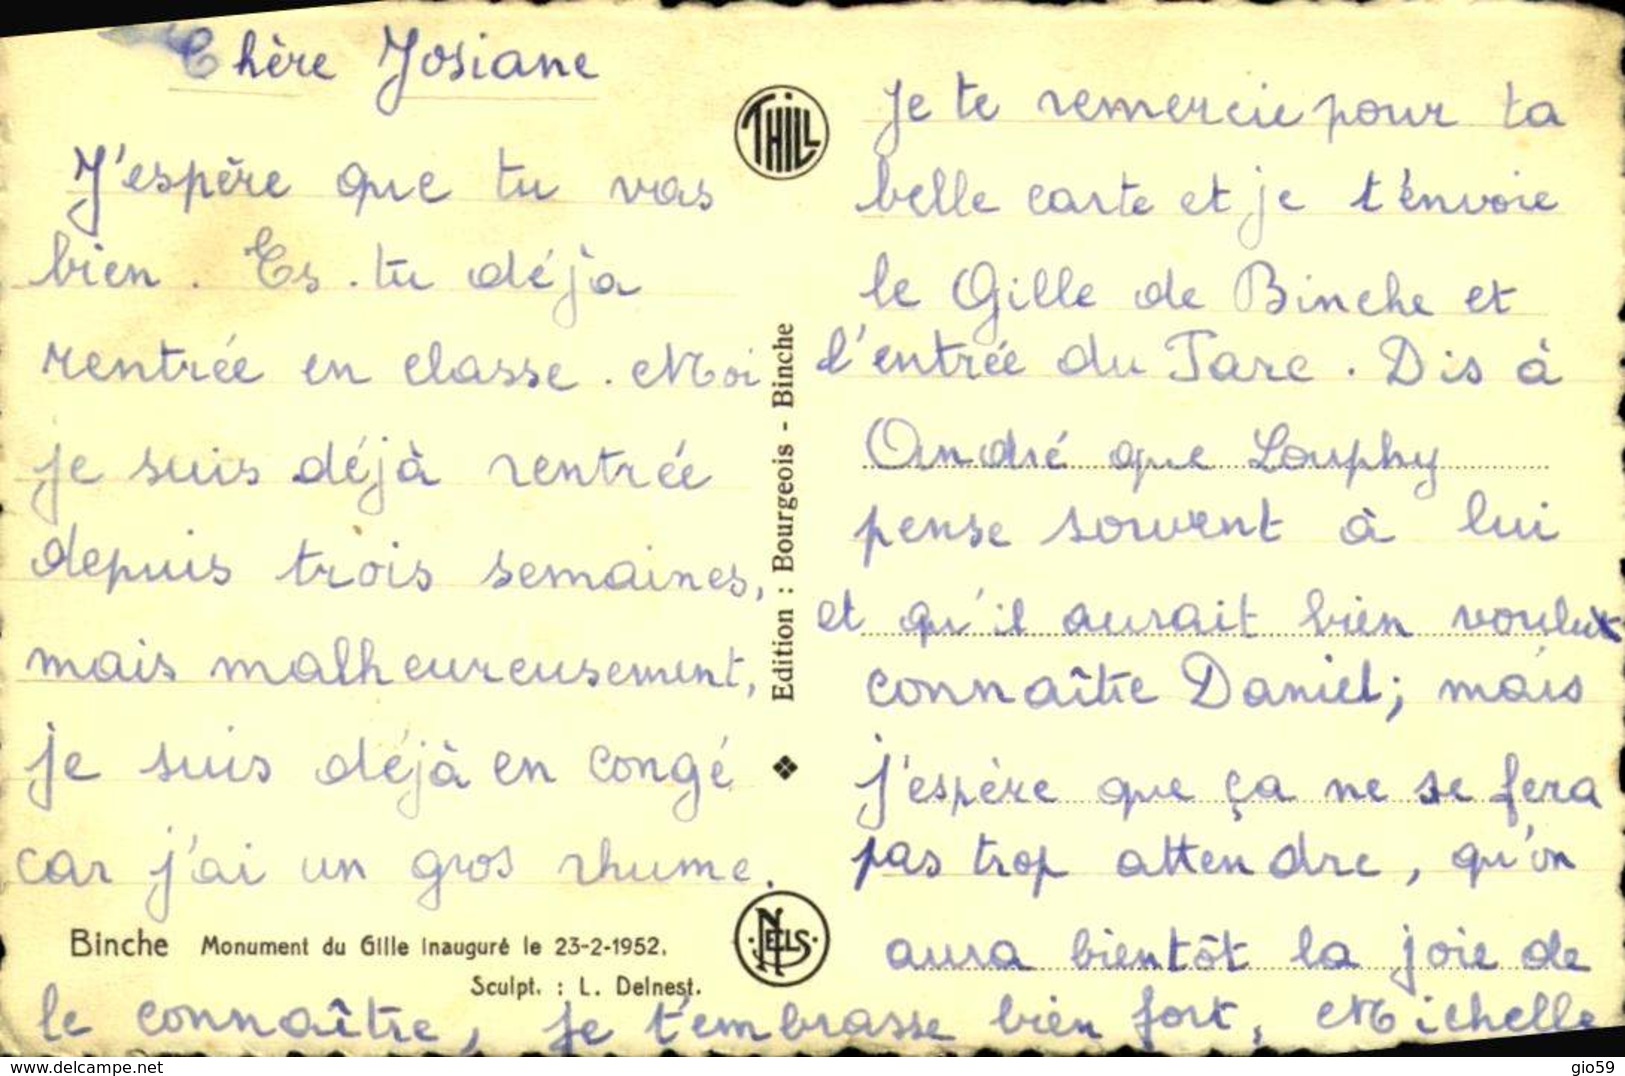 Chère Josiane
J'espère que tu vas
bien. Es-tu déjà
rentrée en classe. Moi
je suis déjà rentrée
depuis trois semaines,
mais malheureusement,
je suis déjà en congé
car j'ai un gros rhume.
Binche Monument du Gille inauguré le 23-2-1952.
Sculpt. : L. Delnest.
THILL
Edition : Bourgeois - Binche
NELS
Je te remercie pour ta
belle carte et je t'envoie
le Gille de Binche et
l'entrée du Parc. Dis à
André que Louphy
pense souvent à lui
et qu'il aurait bien voulu
connaître Daniel; mais
j'espère que ça ne se fera
pas trop attendre, qu'on
aura bientôt la joie de
le connaître, je t'embrasse bien fort, Michelle
www.delcampe.net
gio59